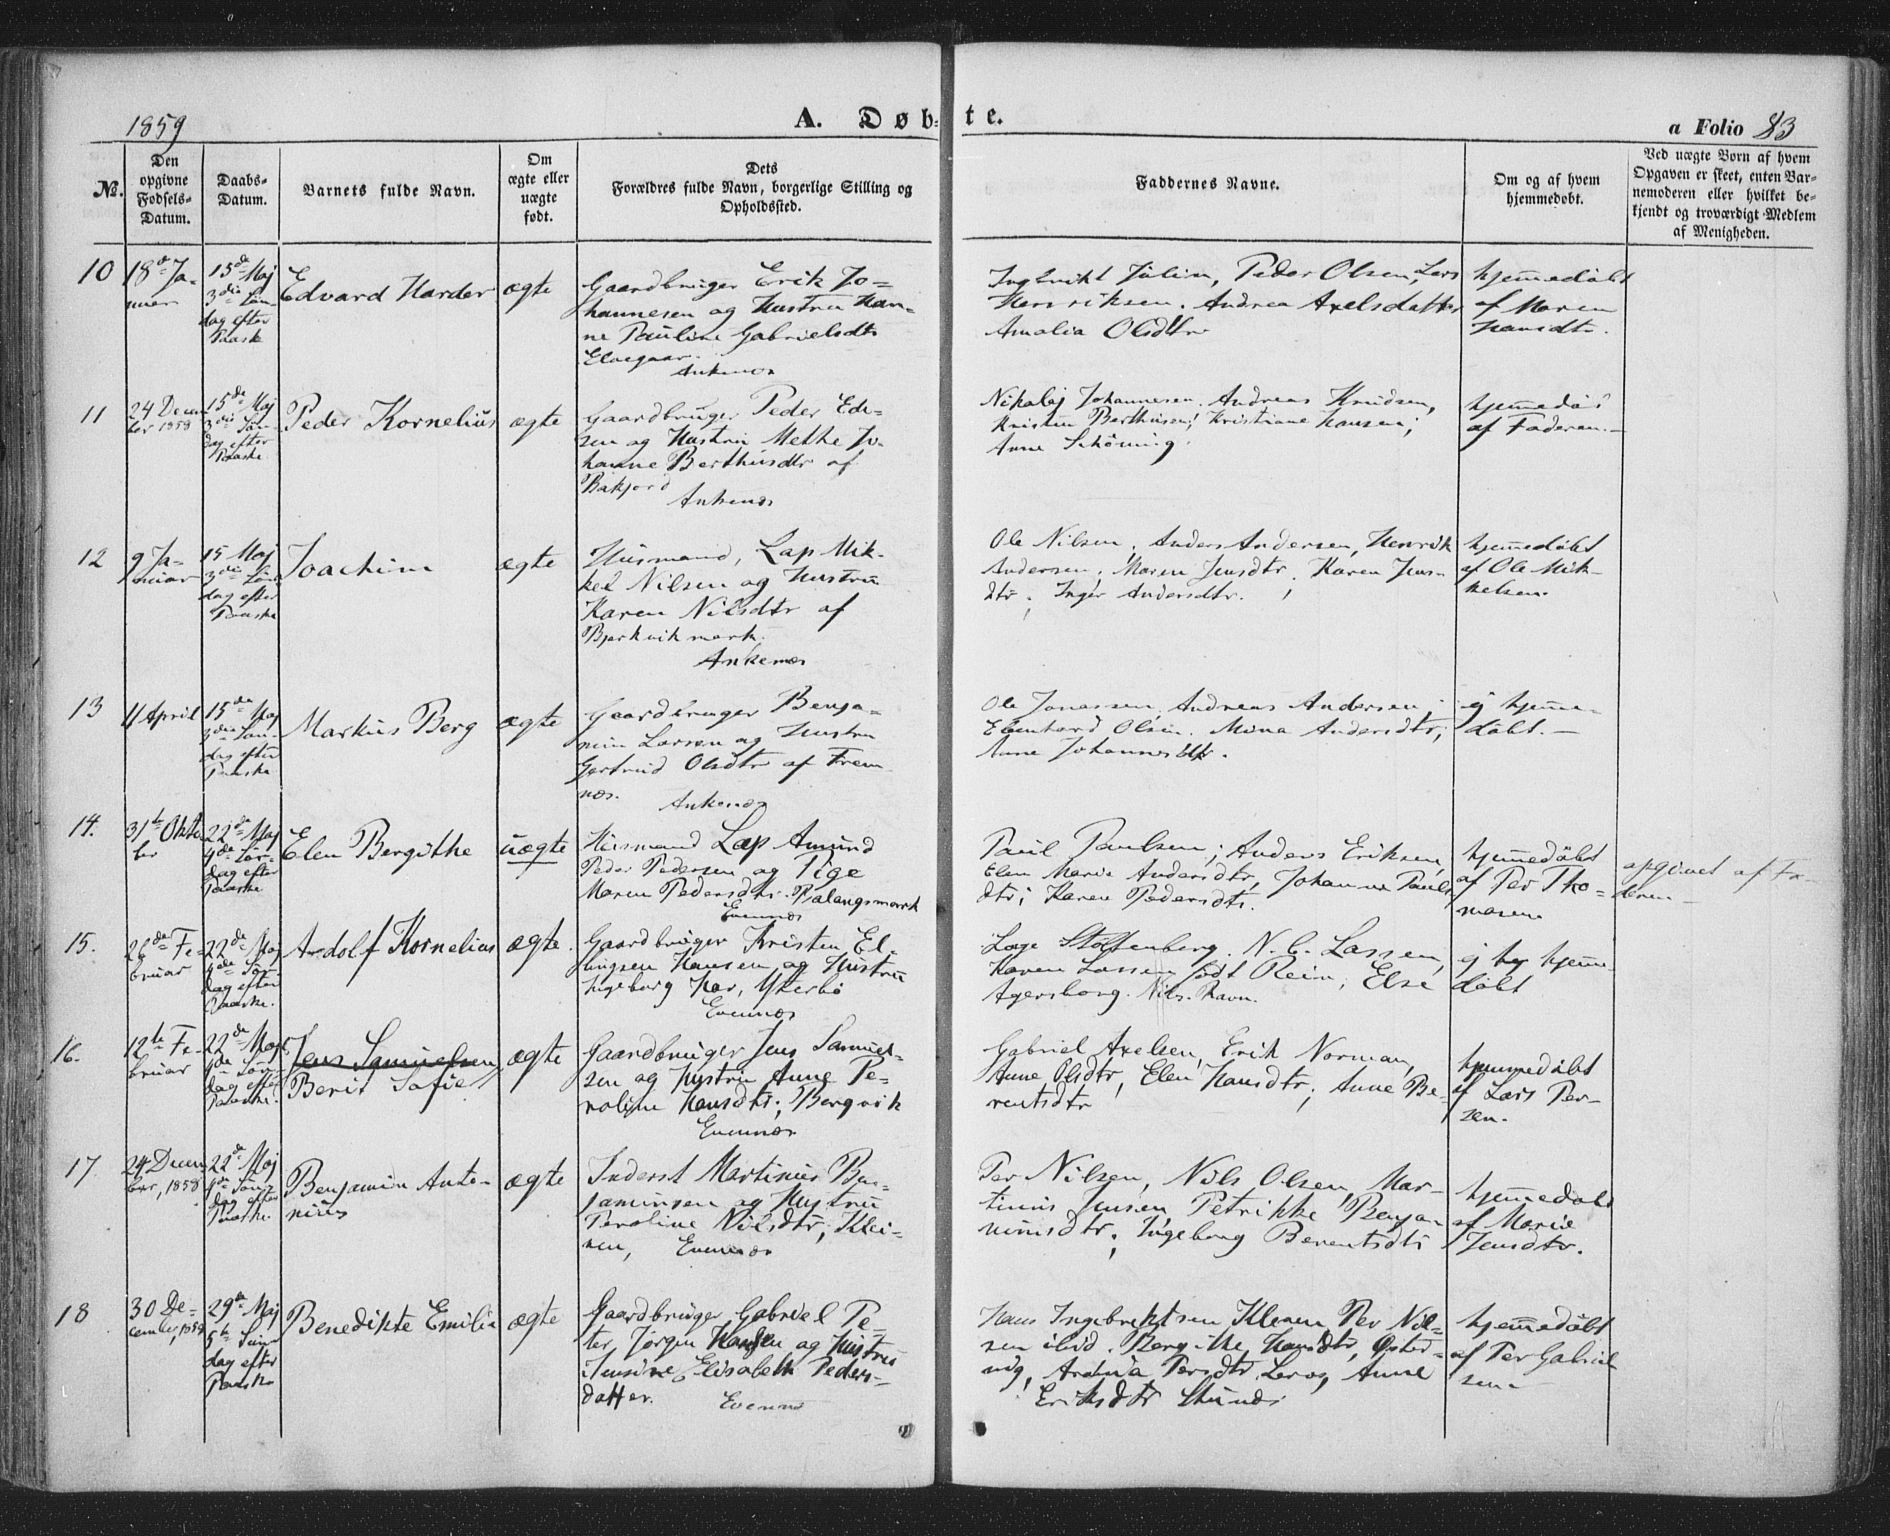 1859
A. Døbte.
a Folio 83
No.
Den opgivne Fødsels-Datum.
Daabs-Datum.
Barnets fulde Navn.
Om ægte eller uægte født.
Dets Forældres fulde Navn, borgerlige Stilling og Opholdssted.
Faddernes Navne.
Om og af hvem hjemmedøbt.
Ved uægte Børn af hvem Opgaven er skeet, enten Barnemoderen eller hvilket bekjendt og troværdigt Medlem af Menigheden.
10
18de Ja-
nuar
15de Maj
3die Søn-
dag efter
Paaske
Edvard Harder
ægte
Gaardbruger Erik Jo-
hannesen og Hustru Han-
ne Pauline Gabrielsdtr
Elvegaar.
Ankenæs
Ingbrikt Julin, Peder Olsen, Lars
Henriksen. Andrea Axelsdatter
Amalia Olsdtr
hjemmedøbt
af Maren
Hansdtr.
11
24 Decem
ber 1858
15de Maj
3die Søn-
dag efter
Paaske
Peder Kornelius
ægte
Gaardbruger Peder Ede-
sen og Hustru Methe Jo-
hanne Berthusdtr af
Bakjord
Ankenæs
Nikolaj Johannesen. Andreas Knudsen,
Kristen Berthusen; Kristiane Hansen;
Anne Schöning.
hjemmedøb
af Faderen.
12
9 Ja-
nuar
15 Maj
3die Søn
dag efter
Paaske
Joachim
ægte
Husmand, Lap Mik-
kel Nilsen og Hustru
Karen Nilsdtr af
Bjerkvikmark.
Ankenæs
Ole Nilsen. Anders Andersen, Henrik
Andersen; Maren Jensdtr, Karen Jens-
dtr; Inger Andersdtr.
hjemmedøbt
af Ole Mik-
kelsen.
13
11 April
15de Maj
3die Søn-
dag efter
Paaske
Markus Berg
ægte
Gaardbruger Benja-
min Larsen og Hustru
Gertrud Olsdtr af Frem
næs.
Ankenæs
Ole Jonassen, Andreas Andersen;
Edenhard Olsen. Mina Andersdtr;
Anne Johannesdtr.
ej hjemme-
døbt.
14.
31te Okto
ber
22de Maj
4de Søn-
dag efter
Paaske
Elen Bergithe
uægte
Husmand Lap Amund
Peder Pedersen og Pige
Maren Pedersdtr. Balangsmark
Evenæs
Paul Paulsen; Anders Eriksen,
Elen Marie Andersdtr, Johanna Pauls
dtr; Karen Pedersdtr.
hjemmedøbt
af Per Tho-
masen
opgivet af Fa-
deren
15.
26de Fe-
bruar
22de Maj
4de Søn-
dag efter
Paaske.
Andolf Kornelius
ægte.
Gaardbruger Kristen El-
lingsen Hansen og Hustru
Ingeborg Kar, Ytterbø
Evenæs
Lage Stoltenberg. N. C. Lassen,
Karen Lassen født Rein, Else
Agersborg. Nils Ravn.
ej hjemme-
døbt
16.
12te Fe-
bruar
22de Maj
4de Søn-
dag efter
Paaske.
Jens Samuelsen
Berit Sofie
ægte
Gaardbruger Jens Samuel-
sen og Hustru Anne Pe-
roline Hansdtr; Bergvik
Evenæs
Gabriel Axelsen, Erik Norman,
Anne Olsdtr, Elen Hansdtr; Anne Be-
rentsdtr
hjemmedøbt
af Lars Per-
sen.
17.
24 Decem
ber, 1858
22de Maj
4de Søn-
dag efter
Paaske.
Benjamin Anto-
nius
ægte
Inderst Martinius Ben-
jaminsen og Hustru
Peroline Nilsdtr; Klei-
ven,
Evenæs
Per Nilsen, Nils Olsen, Mar-
tinus Jensen Petrikke Benja-
minsdtr; Ingeborg Berentsdtr
hjemmedøbt
af Marie
Jensdtr.
18
30 De-
cember, 1858
29de Maj
5te Søn
dag efter
Paaske
Benedikte Emilia
ægte
Gaardbruger Gabriel Pe-
ter, Jørgen Hansen og Hustru
Jensine Elisabeth Peders-
datter.
Evenæs
Hans Ingebrektsen Kleven Per Nil-
sen ibid. Bergithe Hansdtr, Østervig,
Persdtr Leros, Anne
Eriksdtr
hjemmedøbt
af Per Gabriel
sen